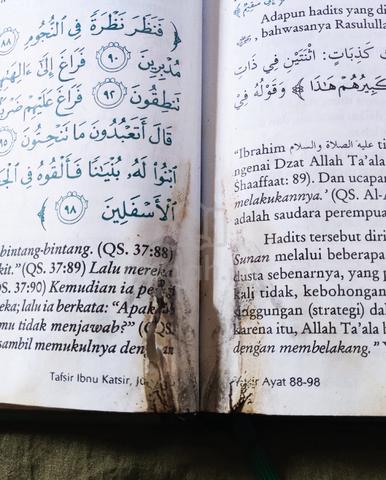 فَنَظَرَ نَظْرَةً فِي النُّجُومِ ٨٨
مُدْبِرِينَ ٩٠ فَرَاغَ إِلَىٰ ءَالِهَتِهِمْ
تَنطِقُونَ ٩٢ فَرَاغَ عَلَيْهِمْ ضَرْبًا
قَالَ أَتَعْبُدُونَ مَا تَنْحِتُونَ ٩٥
ابْنُوا لَهُ بُنْيَٰنًا فَأَلْقُوهُ فِي
الْأَسْفَلِينَ ٩٨
bintang-bintang. (QS. 37:88)
kit." (QS. 37:89) Lalu mereka
S. 37:90) Kemudian ia
eka; lalu ia berkata: "Apakah
mu tidak menjawab?"
sambil memukulnya dengan
Tafsir Ibnu Katsir,
Adapun hadits yang di
, bahwasanya Rasulullah
كَذِبَاتٍ: اثْنَتَيْنِ فِي ذَاتِ
كَبِيرُهُمْ هَٰذَا ﴾ وَقَوْلُهُ فِي
"Ibrahim عليه الصلاة والسلام
ngenai Dzat Allah Ta'ala
Shaaffaat: 89). Dan ucapan
melakukannya.' (QS. Al-A
adalah saudara perempua
Hadits tersebut diri
Sunan melalui beberapa
dusta sebenarnya, yang
kali tidak, kebohongan
singgungan (strategi) dal
karena itu, Allah Ta'ala
dengan membelakang."
Ayat 88-98